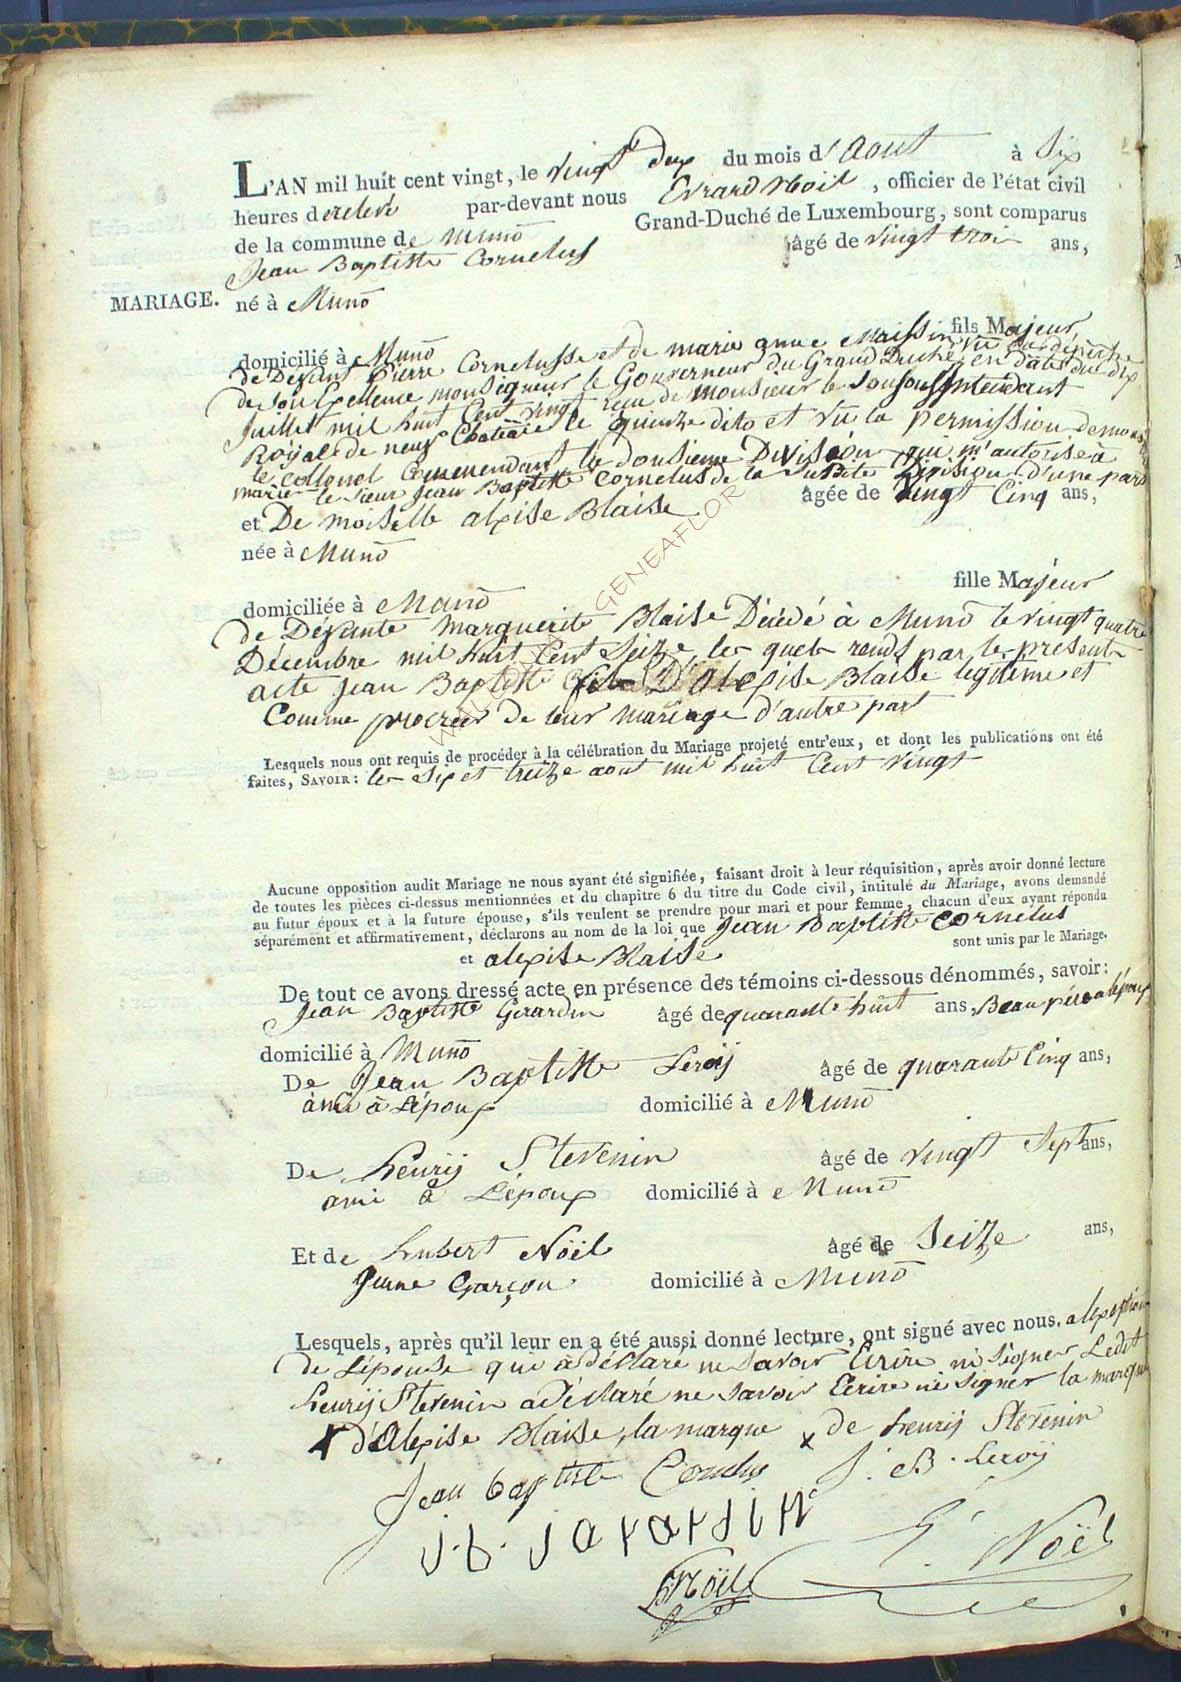 L'AN mil huit cent vingt, le vingt deux du mois d'aout à Six
heures de relevé par-devant nous Evrard Noël, officier de l'état civil
de la commune de Muno Grand-Duché de Luxembourg, sont comparus
Jean Baptiste Cornelus âgé de vingt troi ans,
MARIAGE. né à Muno
domicilié à Muno fils Majeur
de Defunt Pierre Cornelusse et de marie anne Maissin vu la dépêche
de Son Excellence monseigneur le Gouverneur du Grand Duché en date du dix
Juillet mil huit Cent vingt recu de monsieur le Sousousintendant
Royale de neuf Chateaie le quinze dito et vu la permission de mons
le collonel Commendant la dousieme Division qui m'autorise à
marier le sieur Jean Baptiste Cornelus de la susdite Division d'une part
et De moiselle alexise Blaise âgée de vingt Cinq ans,
née à Muno
domiciliée à Muno fille Majeur
de Défunte Marguerite Blaise Décédé à Muno le vingt quatre
Décembre mil huit Cent Seize les quels rends par le présent
acte Jean Baptiste fils D'alexise Blaise legitime et
Comme procréer de leur mariage d'autre part
Lesquels nous ont requis de procéder à la célébration du Mariage projeté entr'eux, et dont les publications ont été
faites, SAVOIR: les Six et treize aout mil huit Cent vingt
Aucune opposition audit Mariage ne nous ayant été signifiée, faisant droit à leur réquisition, après avoir donné lecture
de toutes les pièces ci-dessus mentionnées et du chapitre 6 du titre du Code civil, intitulé du Mariage, avons demandé
au futur époux et à la future épouse, s'ils veulent se prendre pour mari et pour femme, chacun d'eux ayant répondu
séparément et affirmativement, déclarons au nom de la loi que Jean Baptiste Cornelus
et alexise Blaise sont unis par le Mariage.
De tout ce avons dressé acte en présence des témoins ci-dessous dénommés, savoir:
Jean Baptiste Gerardin âgé de quarante huit ans, Beau père a lépoux
domicilié à Muno
De Jean Baptiste Leroij âgé de quarante Cinq ans,
ami à Lépoux domicilié à Muno
De henrij Stevenin âgé de vingt Sept ans,
ami à Lépoux domicilié à Muno
Et de hubert Nöël âgé de Seize ans,
Jeune Garçon domicilié à Muno
Lesquels, après qu'il leur en a été aussi donné lecture, ont signé avec nous. alexeption
de Lépouse que à déclaré ne Savoir Ecrire ni Signer Ledit
henrij Stevenin a Déclaré ne savoir Ecrire ni signer la marque
x d'Alexise Blaise, la marque x de henrij Stevenin
Jean baptiste Cornelus J. B. Leroij
j. b. jarardin
h Noël E. Noël
WALLONIA GENEAFLOR